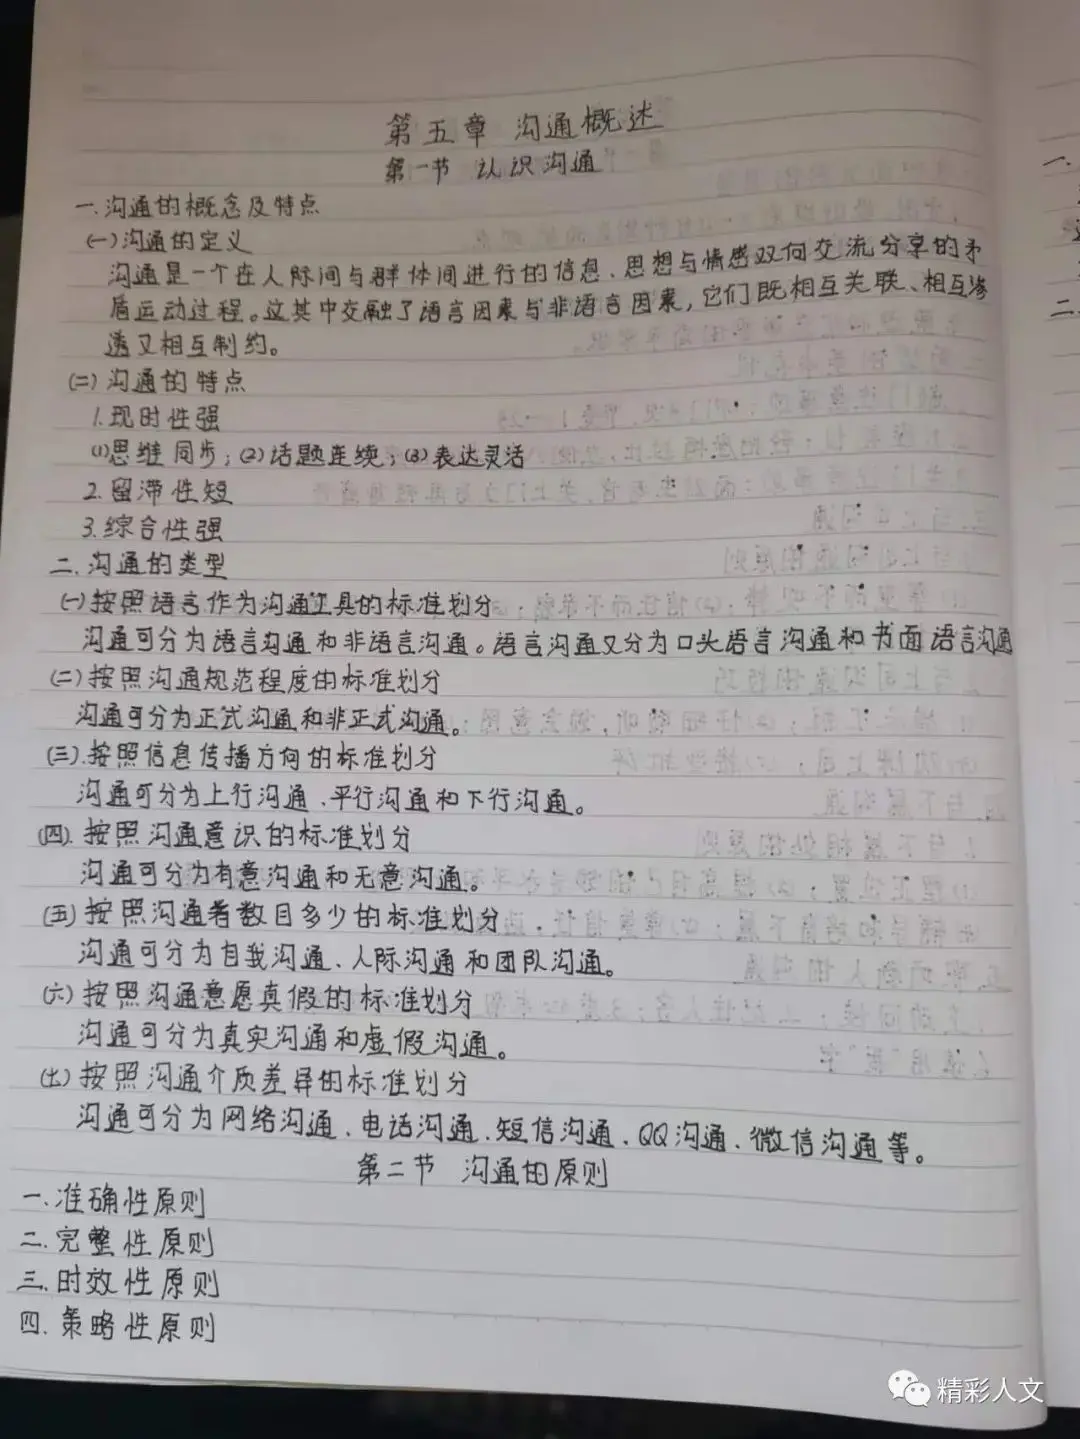 第五章 沟通概述
第一节 认识沟通
一.沟通的概念及特点
(一)沟通的定义
沟通是一个在人际间与群体间进行的信息、思想与情感双向交流分享的矛
盾运动过程。这其中交融了语言因素与非语言因素,它们既相互关联、相互渗
透又相互制约。
(二)沟通的特点
1.现时性强
(1)思维同步;(2)话题连续;(3)表达灵活
2.留滞性短
3.综合性强
二.沟通的类型
(一)按照语言作为沟通工具的标准划分
沟通可分为语言沟通和非语言沟通。语言沟通又分为口头语言沟通和书面语言沟通
(二)按照沟通规范程度的标准划分
沟通可分为正式沟通和非正式沟通。
(三).按照信息传播方向的标准划分
沟通可分为上行沟通、平行沟通和下行沟通。
(四).按照沟通意识的标准划分
沟通可分为有意沟通和无意沟通。
(五)按照沟通者数目多少的标准划分
沟通可分为自我沟通、人际沟通和团队沟通。
(六)按照沟通意愿真假的标准划分
沟通可分为真实沟通和虚假沟通。
(七)按照沟通介质差异的标准划分
沟通可分为网络沟通、电话沟通、短信沟通、QQ沟通、微信沟通等。
第二节 沟通的原则
一.准确性原则
二.完整性原则
三.时效性原则
四.策略性原则
精彩人文